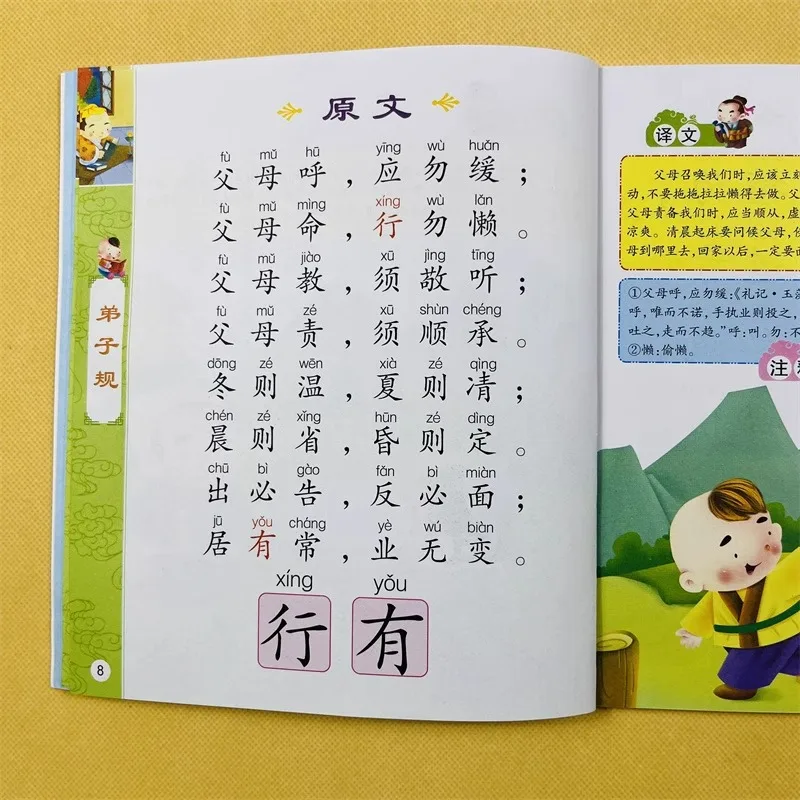 原文
fù mǔ hū yīng wù huǎn
父母呼，应勿缓；
fù mǔ mìng xíng wù lǎn
父母命，行勿懒。
fù mǔ jiào xū jìng tīng
父母教，须敬听；
fù mǔ zé xū shùn chéng
父母责，须顺承。
dōng zé wēn xià zé qìng
冬则温，夏则凊；
chén zé xǐng hūn zé dìng
晨则省，昏则定。
chū bì gào fǎn bì miàn
出必告，反必面；
jū yǒu cháng yè wú biàn
居有常，业无变。
xíng yǒu
行 有
弟子规
8
译文
父母召唤我们时，应该立刻
动，不要拖拖拉拉懒得去做。父
父母责备我们时，应当顺从，虚
凉爽。清晨起床要问候父母，
母到哪里去，回家以后，一定要面
①父母呼，应勿缓：《礼记·玉
呼，唯而不诺，手执业则投之，
吐之，走而不趋。”呼：叫。勿：不
②懒：偷懒。
注